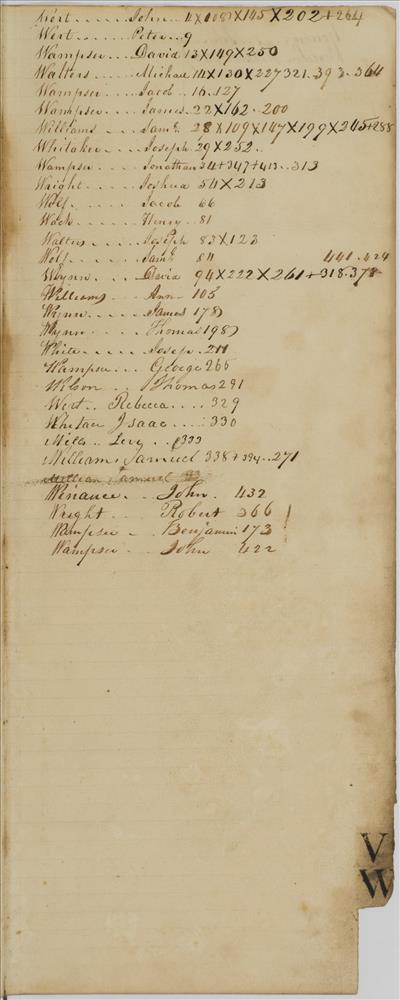 Wert......John 4X108X145X202+264
Wert......Peter..9
Wampser....David 13X149X250
Walters.....Michael 14X130X227 321.393.364
Wampser....Jacob..16.127
Wampser....James.22X162..200
Williams....Saml. 28X109X147X199X245+288
Whitaker...Joseph 29X252..
Wampser....Jonathan 34+347+413..313
Wright......Joshua 54X213
Wolf.......Jacob 66
Henry..81
Walters.....Joseph 83X123
Wolf.......Saml. 84 441.424
Wynn......David 94X222X261+318.378
Williams....Ann - 105
Wynn......James 178
Wynn......Thomas 198
White......Joseph.211
Wampser....George 266
Wilson...Thomas 291
Wert..Rebecca....329
Isaac....330
Levy...333
William, Samuel 338+394..271
William Samuel
Winance..John.432
Wright...Robert 366
Wampser..Benjamin 173
Wampser..John 422
V
W